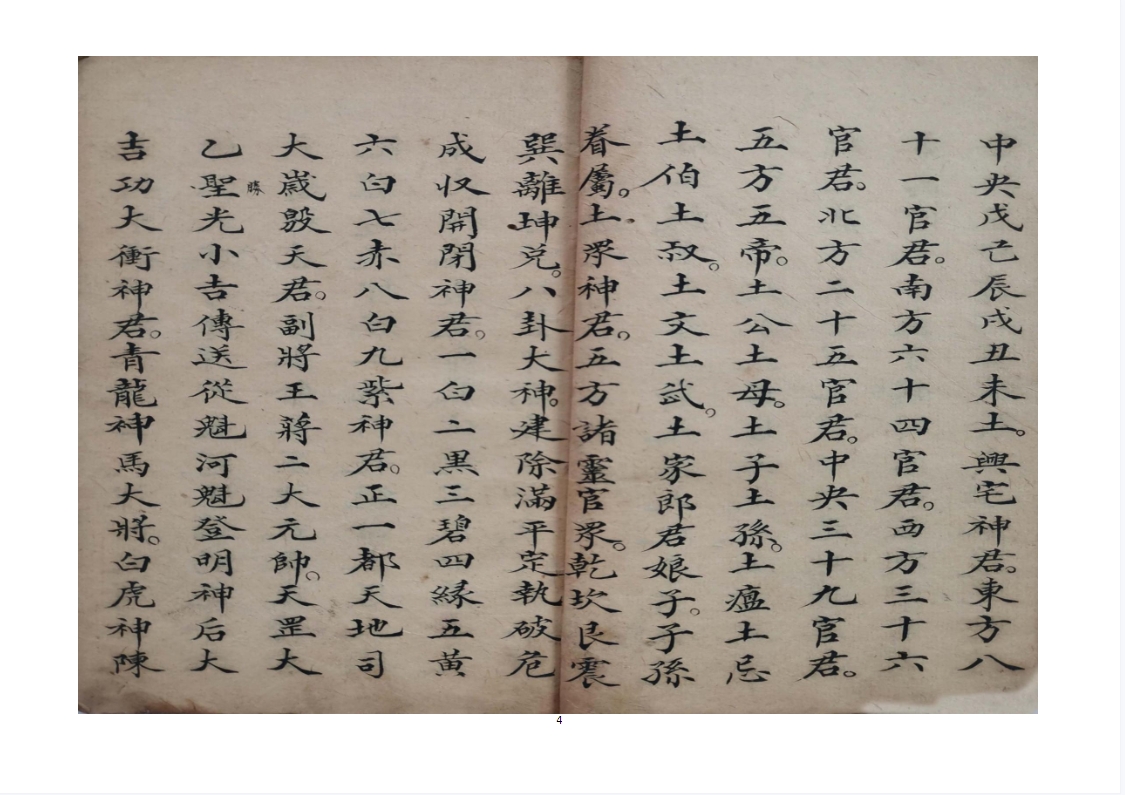 中央戊己辰戌丑未土。興宅神君。東方八
十一官君。南方六十四官君。西方三十六
官君。北方二十五官君。中央三十九官君。
五方五帝。土公土母。土子土孫。土瘟土忌
土伯土叔。土文土武。土家郎君娘子。子孫
眷屬。土眾神君。五方諸靈官眾。乾坎艮震
巽離坤兌。八卦大神。建除滿平定執破危
成収開閉神君。一白二黒三碧四緑五黄
六白七赤八白九紫神君。正一都天地司
大嵗殷天君。副將王蔣二大元帥。天罡大
乙勝聖光小吉傳送從魁河魁登明神后大
吉功大衝神君。青龍神馬大將。白虎神陳
4